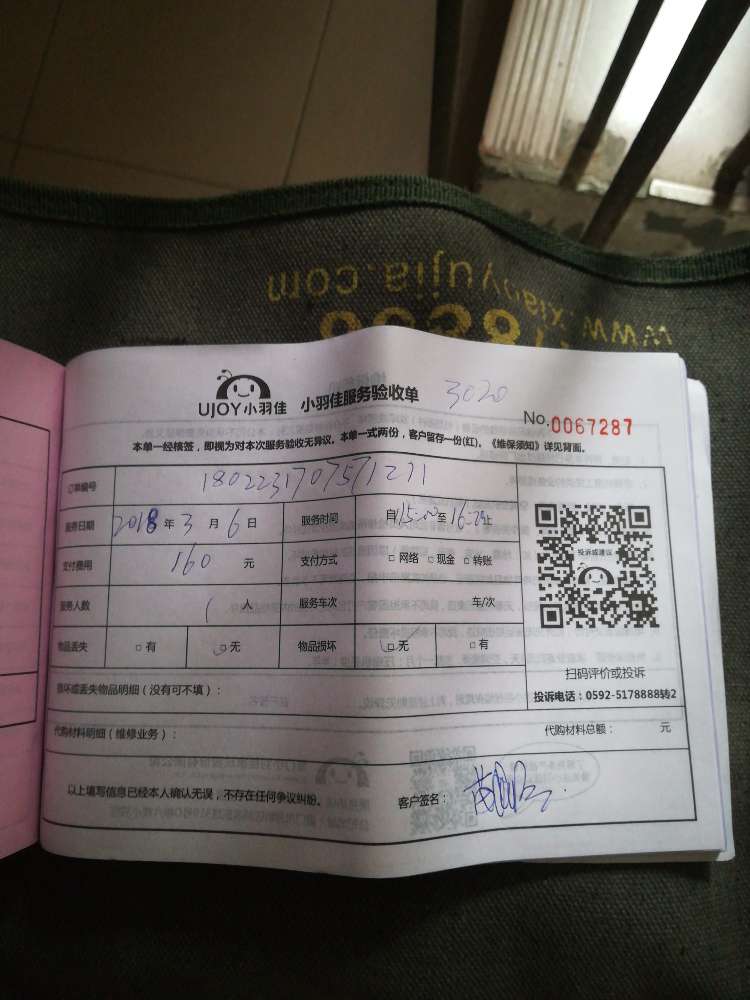 www.xiaoyujia.com
UJOY小羽佳 小羽佳服务验收单 3020
No.0067287
本单一经核签，即视为对本次服务验收无异议。本单一式两份，客户留存一份(红)。《维保须知》详见背面。
订单编号 1802231707571271
服务日期 2018年3月6日 服务时间 自15:00至16:29止
支付费用 160 元 支付方式 □网络 □现金 □转账
服务人数 1 人 服务车次 车/次
物品丢失 □有 □无 物品损坏 □无 □有
投诉或建议
扫码评价或投诉
投诉电话：0592-5178888转2
损坏或丢失物品明细（没有可不填）：
代购材料明细（维修业务）： 代购材料总额： 元
以上填写信息已经本人确认无误，不存在任何争议纠纷。 客户签名：